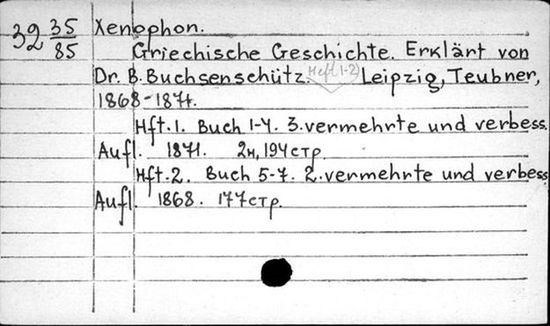 32 35/85 Xenophon.
Griechische Geschichte. Erklärt von
Dr. B. Buchsenschütz. Heft 1-2 Leipzig, Teubner,
1868-1871.
Hft. 1. Buch 1-4. 3. vermehrte und verbess.
Aufl. 1871. 2н, 194 стр.
Hft. 2. Buch 5-7. 2. vermehrte und verbess
Aufl. 1868. 177 стр.